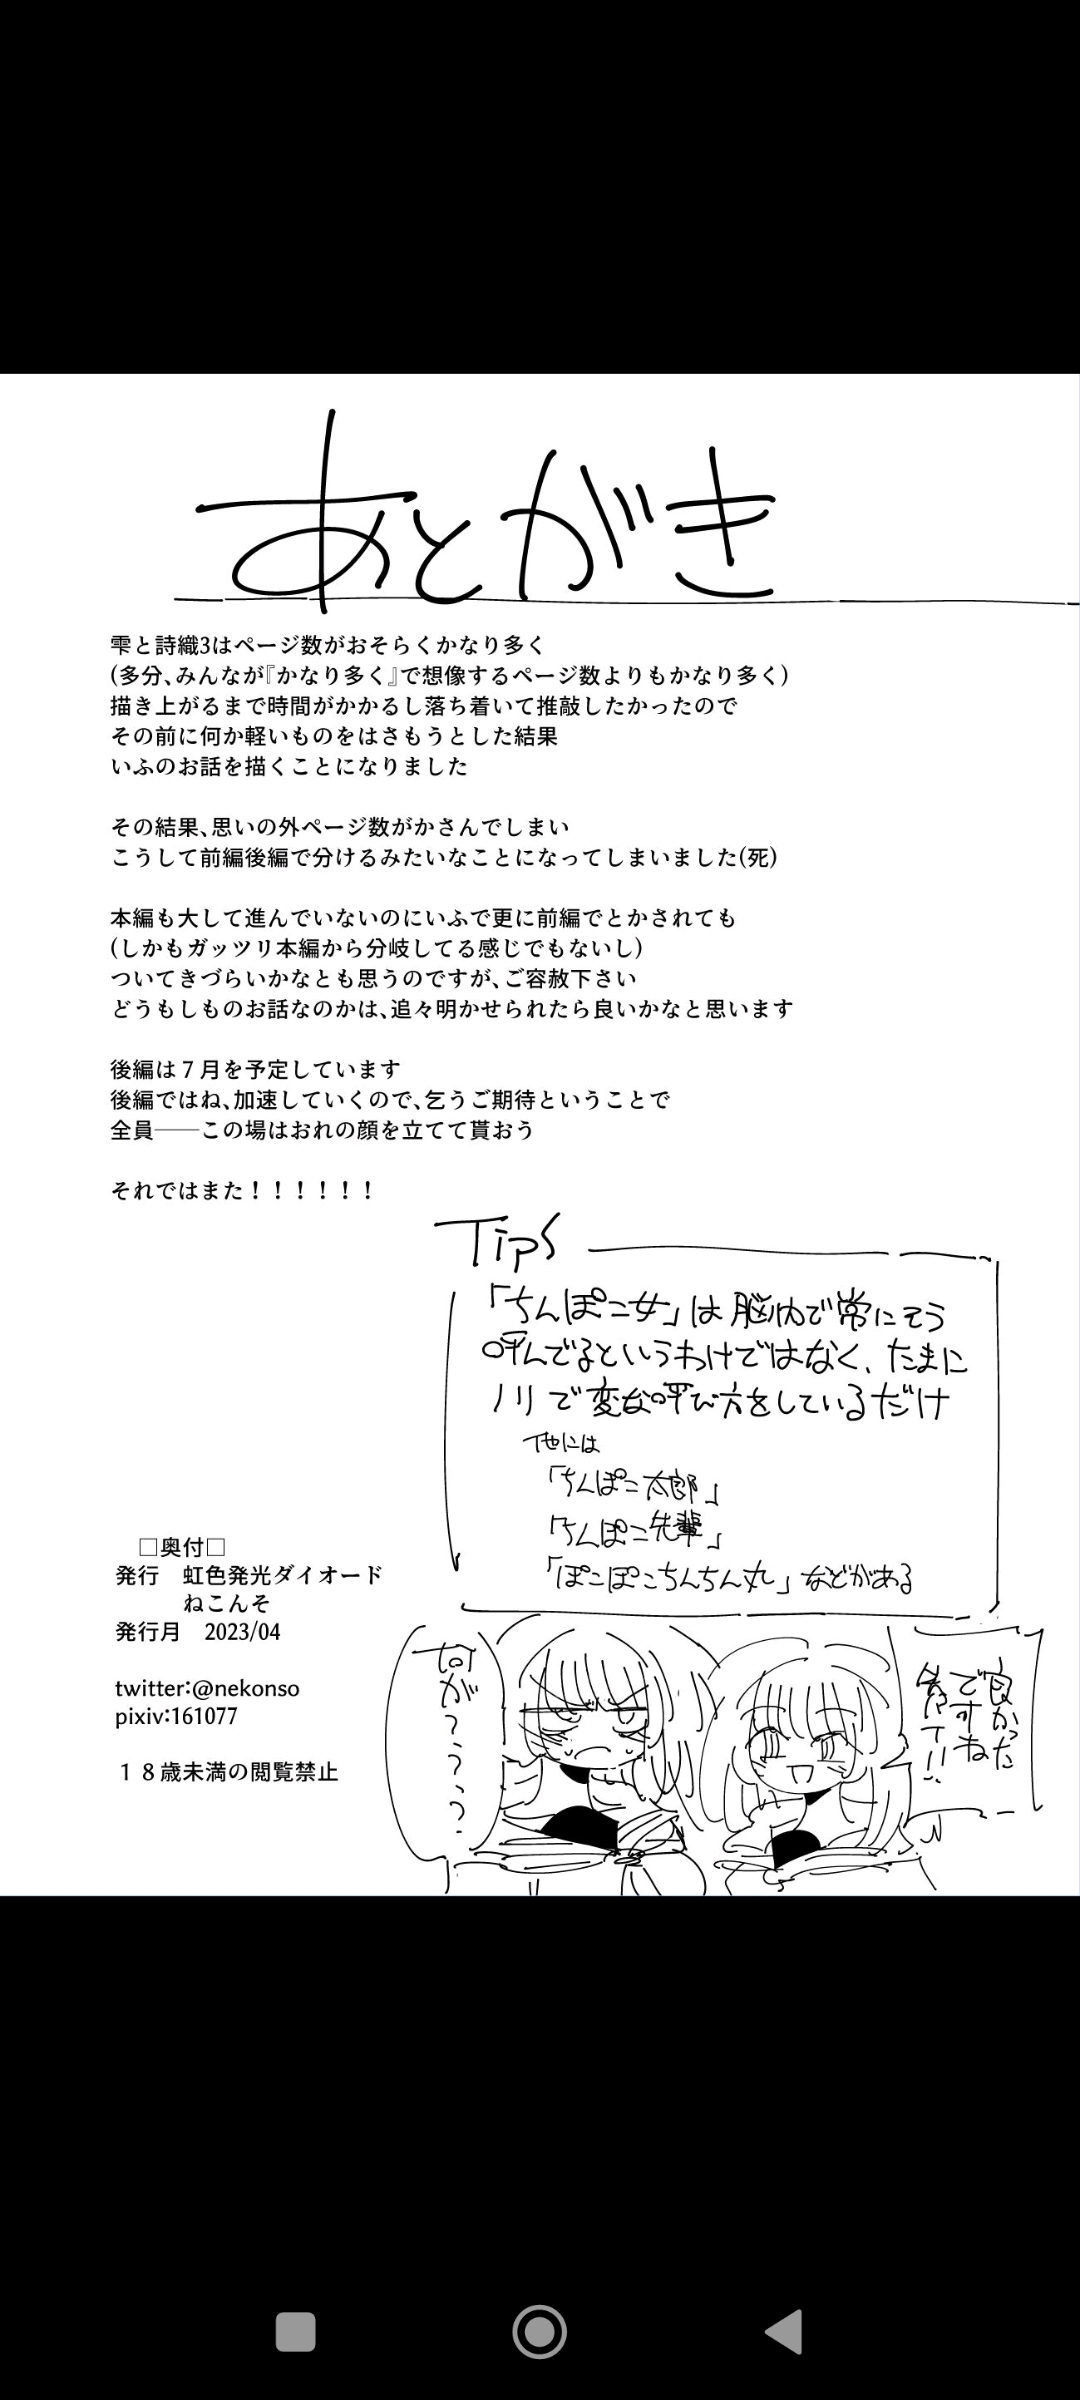 あとがき
雫と詩織3はページ数がおそらくかなり多く
(多分、みんなが『かなり多く』で想像するページ数よりもかなり多く)
描き上がるまで時間がかかるし落ち着いて推敲したかったので
その前に何か軽いものをはさもうとした結果
いふのお話を描くことになりました
その結果、思いの外ページ数がかさんでしまい
こうして前編後編で分けるみたいなことになってしまいました(死)
本編も大して進んでいないのにいふで更に前編でとかされても
(しかもガッツリ本編から分岐してる感じでもないし)
ついてきづらいかなとも思うのですが、ご容赦下さい
どうもしものお話なのかは、追々明かせられたら良いかなと思います
後編は７月を予定しています
後編ではね、加速していくので、乞うご期待ということで
全員──この場はおれの顔を立てて貰おう
それではまた！！！！！！
Tips
「ちんぽこ女」は脳内で常にそう
呼んでるというわけではなく、たまに
ノリで変な呼び方をしているだけ
他には
「ちんぽこ太郎」
「ちんぽこ先輩」
「ぽこぽこちんちん丸」などがある
□奥付□
発行　虹色発光ダイオード
ねこんそ
発行月　2023/04
twitter:@nekonso
pixiv:161077
１８歳未満の閲覧禁止
良かった
ですね
何が？うう？